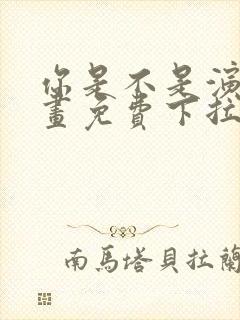 你是不是演
畫免費下拉
南馬塔貝拉蘭